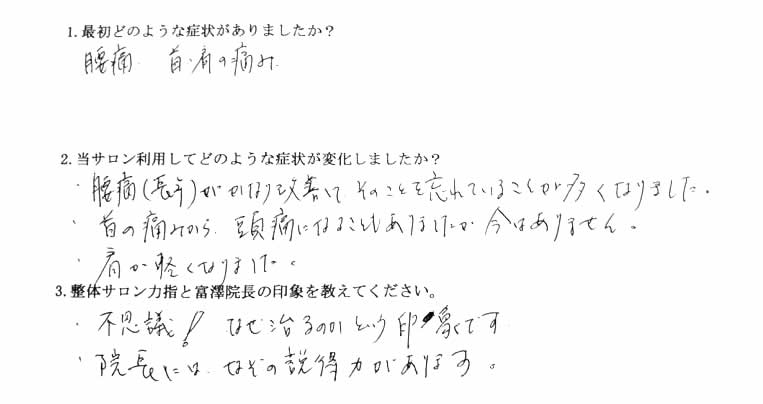 1.最初どのような症状がありましたか?
腰痛 首・肩の痛み
2.当サロン利用してどのような症状が変化しましたか?
・腰痛(長年)がかなり改善して そのことを忘れていることが多くなりました。
・首の痛みから、頭痛になることもありましたが 今はありません。
・肩が軽くなりました。
3.整体サロン力指と富澤院長の印象を教えてください。
・不思議! なぜ治るのか という 印象です
・院長には、なぞの説得力があります。